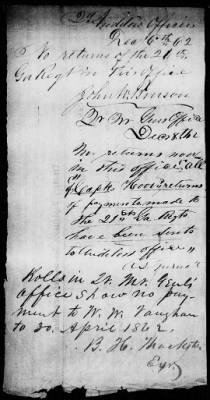 2d Auditors Office
Dec 6th 62
No returns of the 21st
Ga Regt in this office
John W
Qr Mr Genl Office
Dec 8 1862
No returns now
in this office "all
of Capt returns
of payments made to
the 21st Ga Regt
have been sent
to Auditors office"
Rolls in Qr. Mr. Genls
office show no pay-
ment to W. W. Vaughan
to 30. April 1862.
B. H.